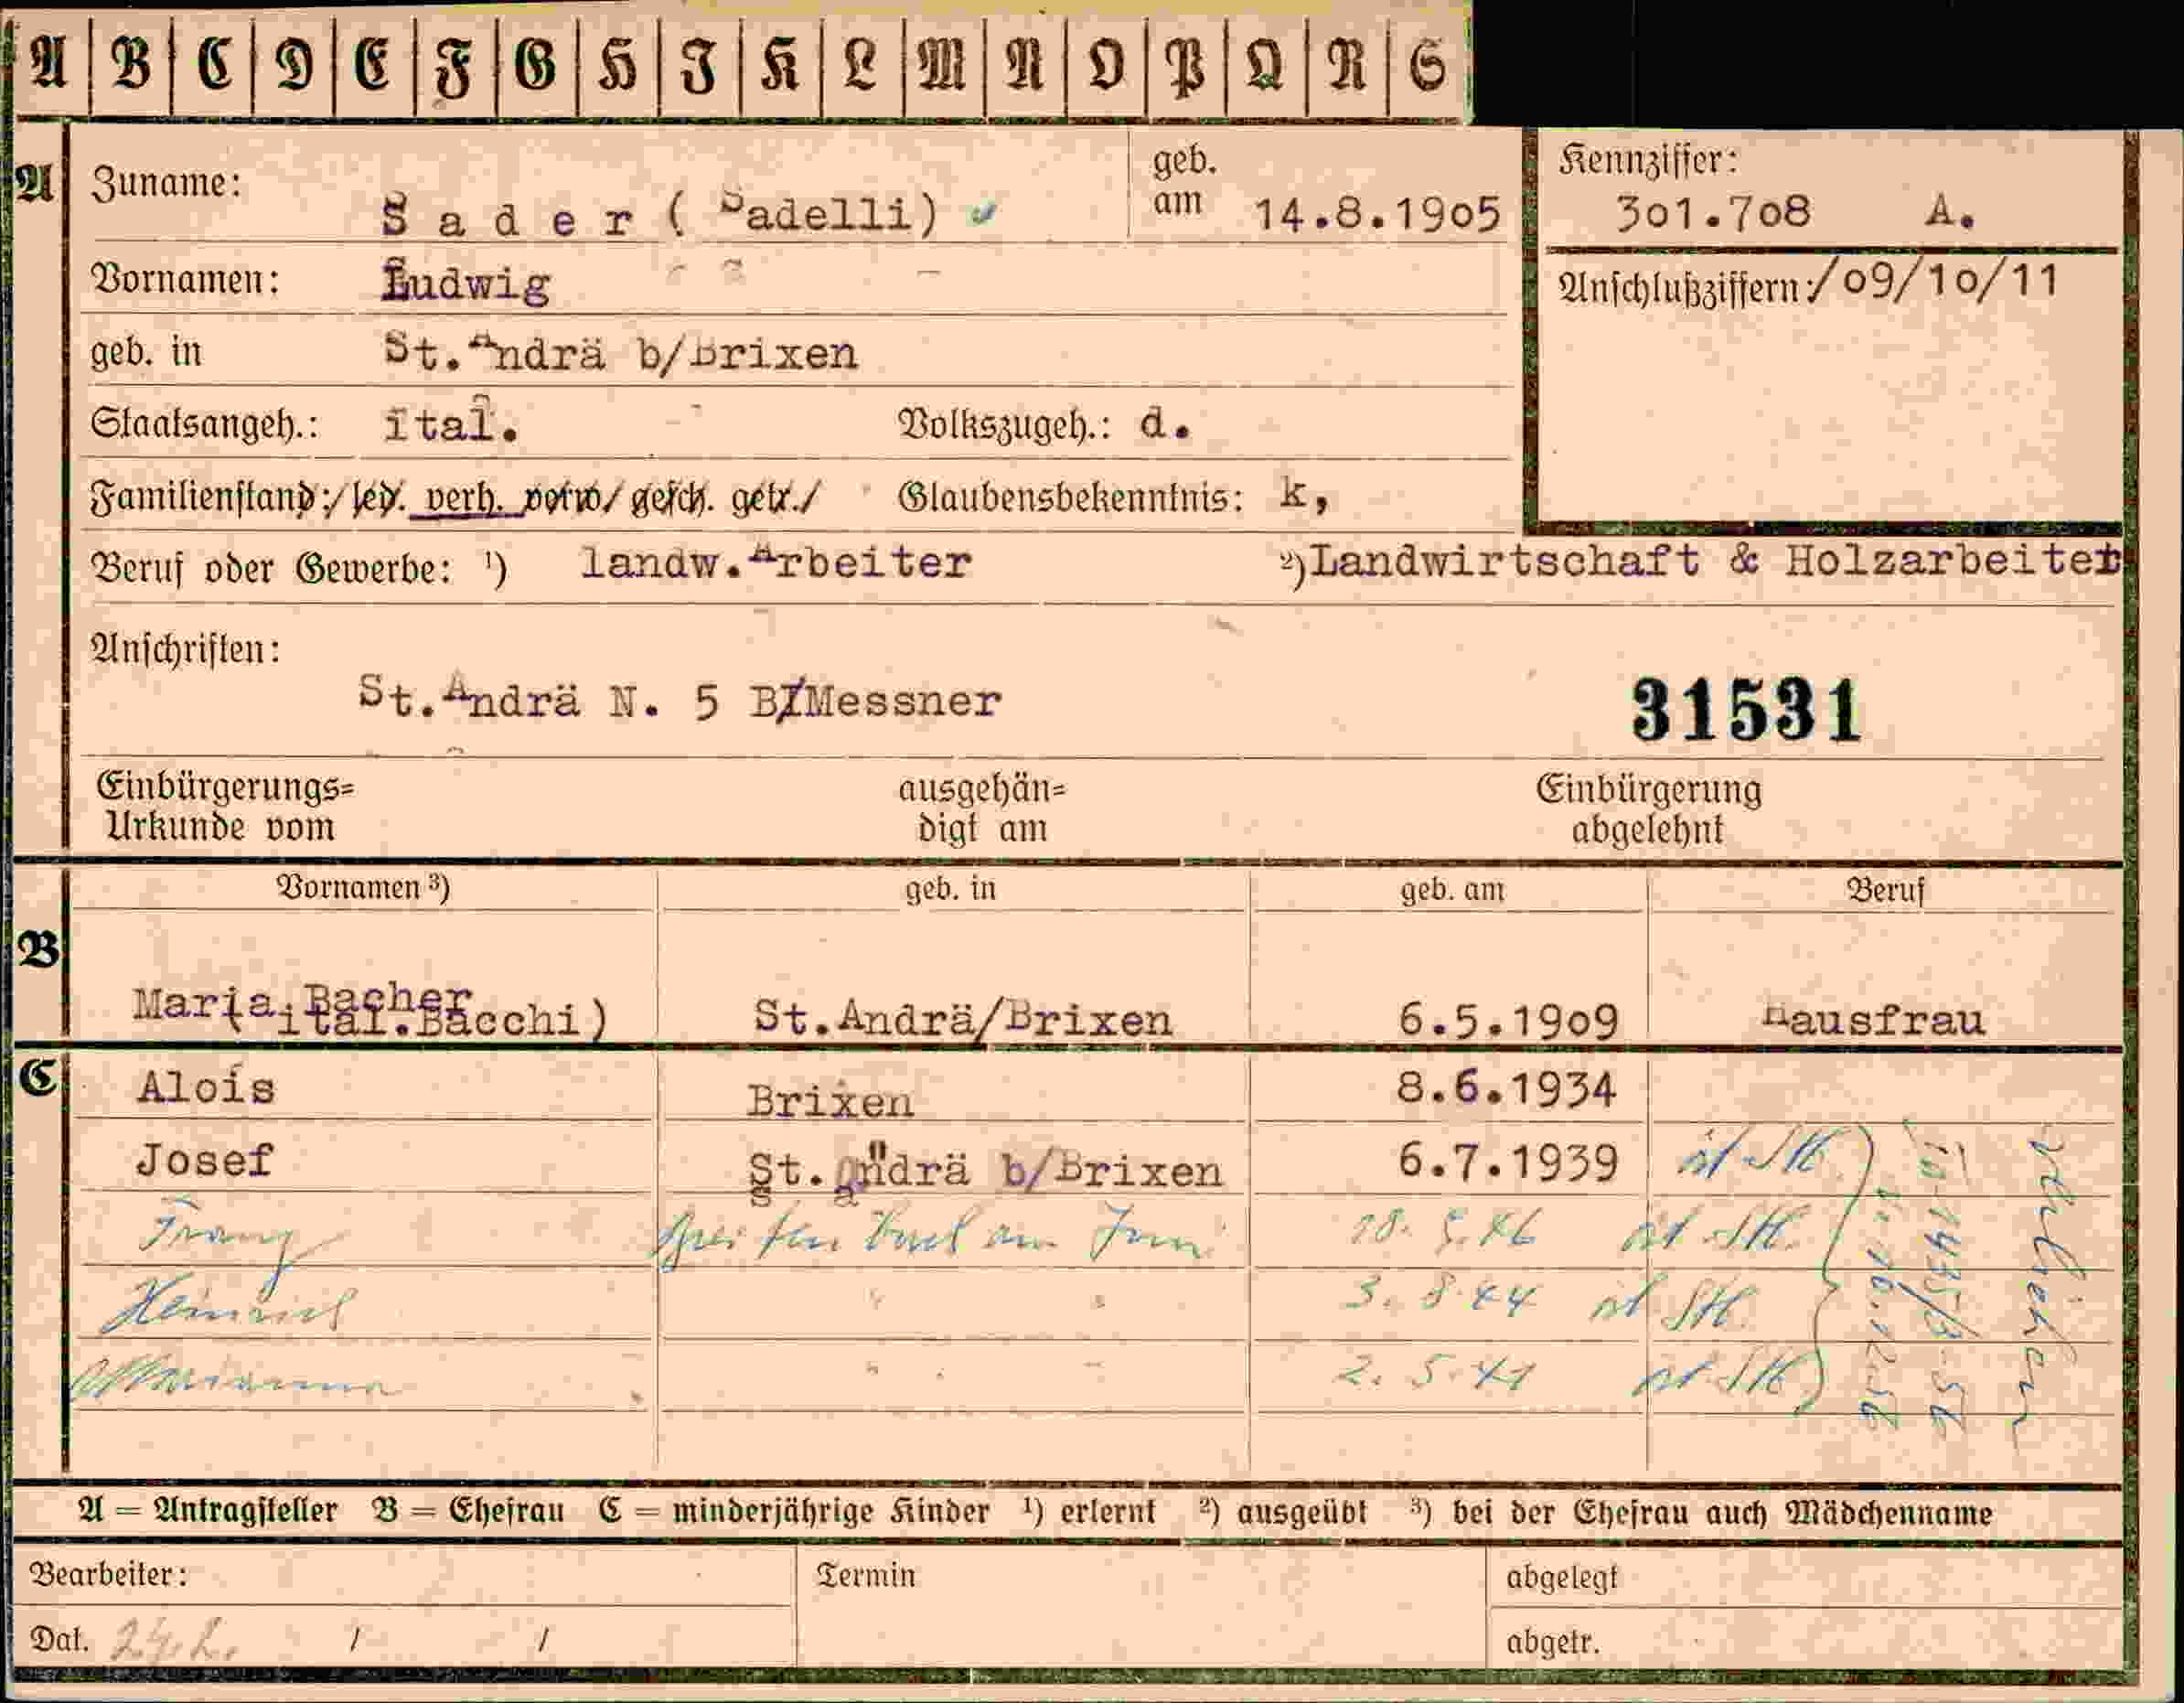 A B C D E F G H I K L M N O P Q R S
A Zuname: Sader (Sadelli) geb. am 14.8.1905
Kennziffer: 301.708 A.
Vornamen: Ludwig
Anschlußziffern: /09/10/11
geb. in St.Andrä b/Brixen
Staatsangeh.: ital. Volkszugeh.: d.
Familienstand: / led. verh. verw/ gesch. getr./ Glaubensbekenntnis: k,
Beruf oder Gewerbe: ¹) landw.Arbeiter ²) Landwirtschaft & Holzarbeiter
Anschriften:
St.Andrä N. 5 B/Messner 31531
Einbürgerungs= ausgehän= Einbürgerung
Urkunde vom digt am abgelehnt
Vornamen ³) geb. in geb. am Beruf
B Maria Bacher
(ital.Bacchi) St.Andrä/Brixen 6.5.1909 Hausfrau
C Alois Brixen 8.6.1934
Josef St.Andrä b/Brixen 6.7.1939
Franz
Heinrich 3. 8.44
Marianna 2. 5.41
A = Antragsteller B = Ehefrau C = minderjährige Kinder ¹) erlernt ²) ausgeübt ³) bei der Ehefrau auch Mädchenname
Bearbeiter: Termin abgelegt
Dat. 24.2. / / abgetr.